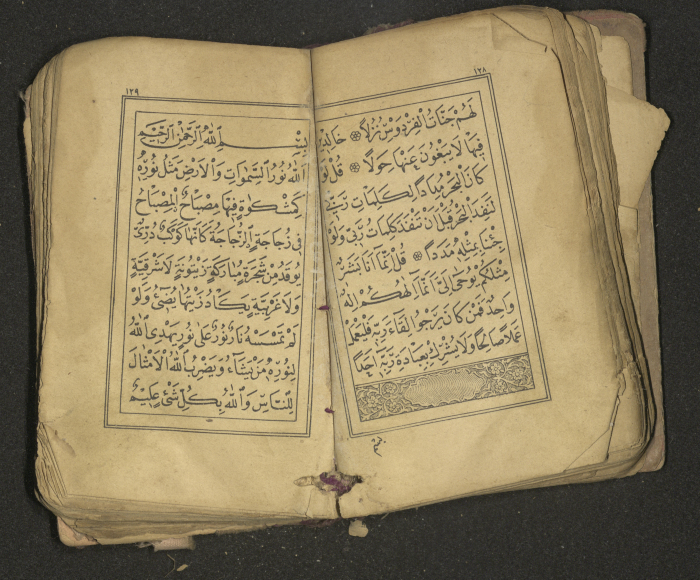 ١٢٨
لَهُمْ جَنَّاتُ الْفِرْدَوْسِ نُزُلًا ۞ خَالِدِينَ
فِيهَا لَا يَبْغُونَ عَنْهَا حِوَلًا ۞ قُلْ لَوْ
كَانَ الْبَحْرُ مِدَادًا لِكَلِمَاتِ رَبِّي
لَنَفِدَ الْبَحْرُ قَبْلَ أَنْ تَنْفَدَ كَلِمَاتُ رَبِّي وَلَوْ
جِئْنَا بِمِثْلِهِ مَدَدًا ۞ قُلْ إِنَّمَا أَنَا بَشَرٌ
مِثْلُكُمْ يُوحَى إِلَيَّ أَنَّمَا إِلَهُكُمْ إِلَهٌ
وَاحِدٌ فَمَنْ كَانَ يَرْجُوا لِقَاءَ رَبِّهِ فَلْيَعْمَلْ
عَمَلًا صَالِحًا وَلَا يُشْرِكْ بِعِبَادَةِ رَبِّهِ أَحَدًا
١٢٩
بِسْمِ اللهِ الرَّحْمٰنِ الرَّحِيمِ
اَللهُ نُورُ السَّمٰوَاتِ وَالْاَرْضِ مَثَلُ نُورِهِ
كَمِشْكٰوةٍ فِيهَا مِصْبَاحٌ اَلْمِصْبَاحُ
فِي زُجَاجَةٍ اَلزُّجَاجَةُ كَاَنَّهَا كَوْكَبٌ دُرِّيٌّ
يُوقَدُ مِنْ شَجَرَةٍ مُبَارَكَةٍ زَيْتُونَةٍ لَا شَرْقِيَّةٍ
وَلَا غَرْبِيَّةٍ يَكَادُ زَيْتُهَا يُضِيءُ وَلَوْ
لَمْ تَمْسَسْهُ نَارٌ نُورٌ عَلٰى نُورٍ يَهْدِي اللهُ
لِنُورِهِ مَنْ يَشَاءُ وَيَضْرِبُ اللهُ الْاَمْثَالَ
لِلنَّاسِ وَاللهُ بِكُلِّ شَيْءٍ عَلِيمٌ